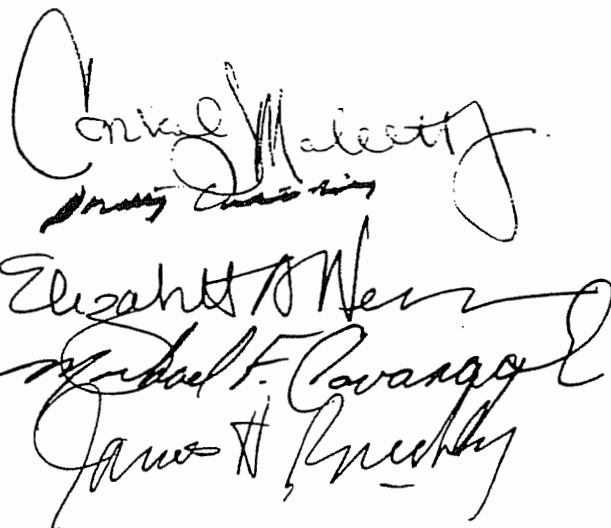 Conrad L Mallett Jr.
Elizabeth A
Michael F. Cavanagh
James H. Brickley